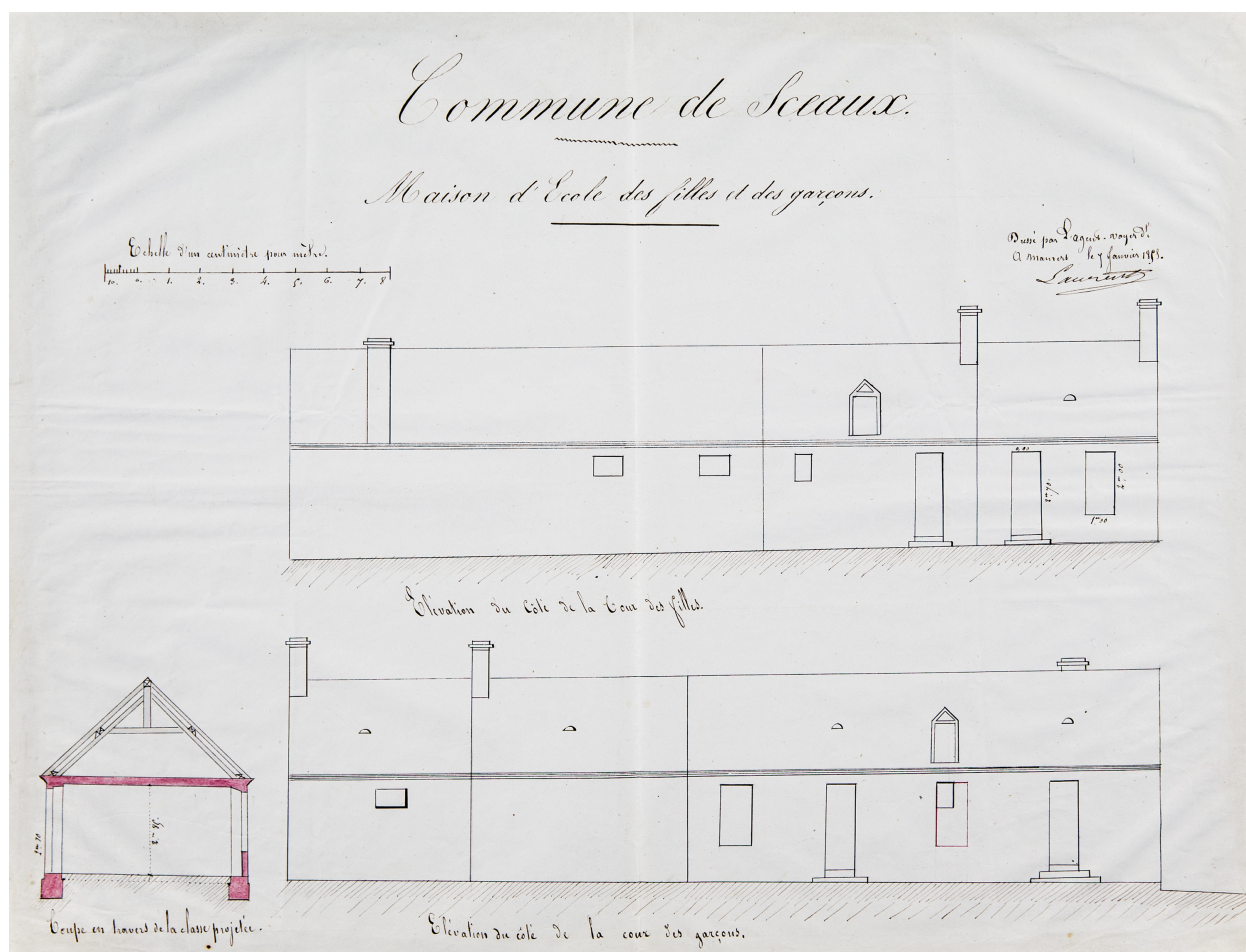 Commune de Sceaux.
Maison d'Ecole des filles et des garçons.
Echelle d'un centimètre pour mètre.
10. 0. 1. 2. 3. 4. 5. 6. 7. 8
Dressé par L'agent-voyer
A le 7 Janvier
Laurent
0,80
2m00
1m00
Elévation du Côté de la Cour des filles.
Coupe en travers de la classe projetée.
Elévation du côté de la cour des garçons.